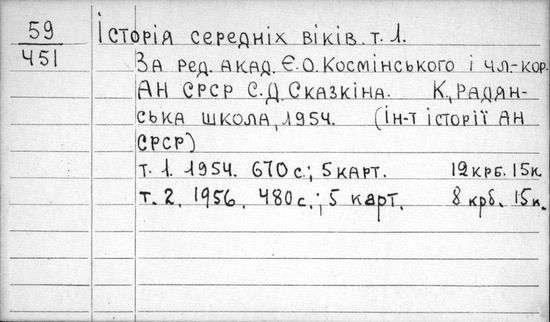 59
451
Історія середніх віків. т. 1.
За ред. акад. Є. О. Космінського і чл.-кор.
АН СРСР С. Д. Сказкіна. К., Радян-
ська школа, 1954. (ін-т історії АН
СРСР)
т. 1. 1954. 670 с.; 5 карт. 12 крб. 15 к.
т. 2. 1956. 480 с.; 5 карт. 8 крб. 15 к.